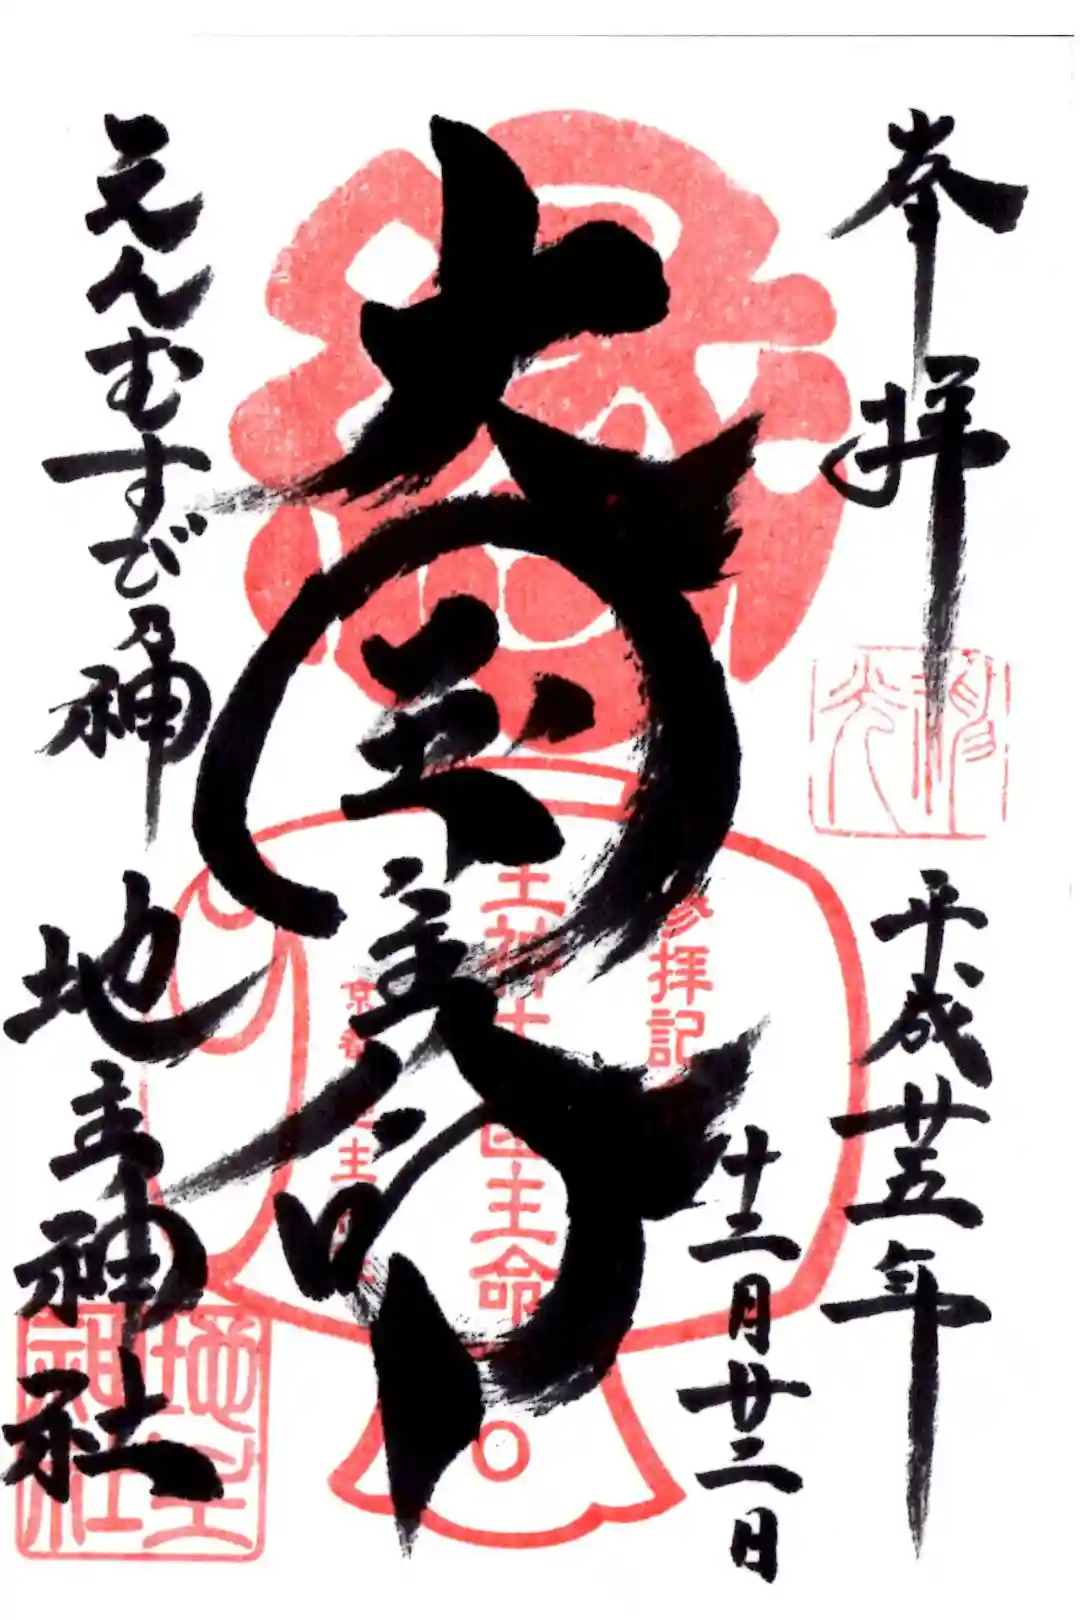 奉拝
平成廿五年
十二月廿二日
大国主命
えんむすび乃神
地主神社
参拝記
主神社
国主命
京都
主
地主神社